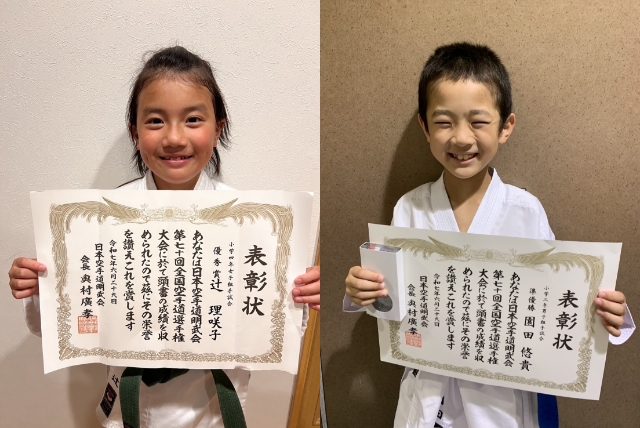 表彰状
小学四年女子組手試合
優秀賞 辻 理咲子
あなたは日本空手道明武会
第七十回全国空手道選手権
大会に於て頭書の成績を収
められたので茲にその栄誉
を讃えこれを賞します
令和七年六月二十八日
日本空手道明武会
会長 奥村廣孝
表彰状
小学三年男子組手試合
準優勝 園田 悠貴
あなたは日本空手道明武会
第七十回全国空手道選手権
大会に於て頭書の成績を収
められたので茲にその栄誉
を讃えこれを賞します
令和七年六月二十八日
日本空手道明武会
会長 奥村廣孝